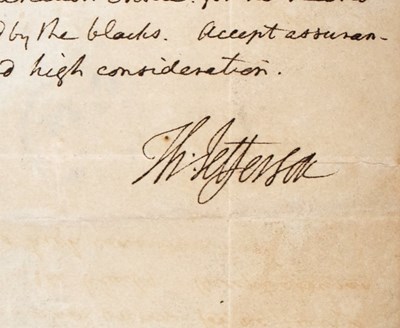 d by the blacks. Accept assuran-
d high consideration.
Th: Jefferson